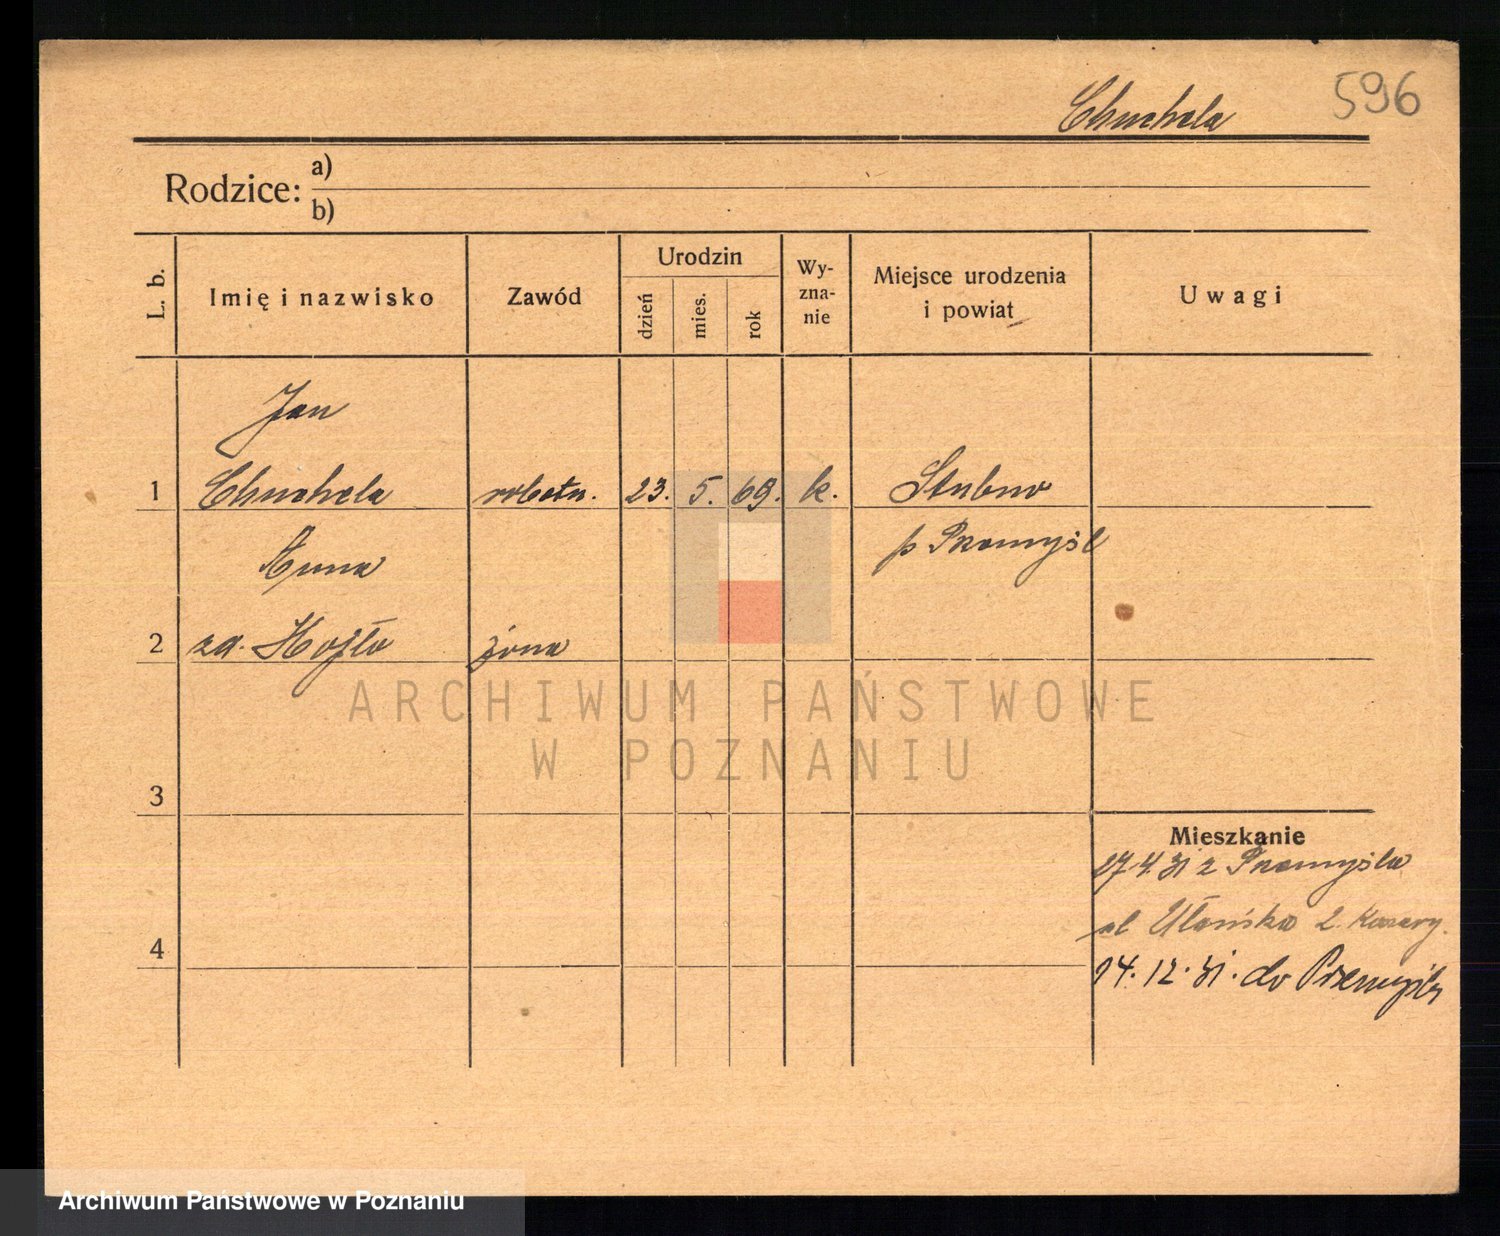 596
Chuchela
Rodzice:
a)
b)
L. b.
Imię i nazwisko
Zawód
Urodzin
dzień
mies.
rok
Wy-
zna-
nie
Miejsce urodzenia
i powiat
Uwagi
Jan
1 Chuchela robotn. 23. 5. 69. k. Stubno
p Przemyśl
Anna
2 żona
3
4
Mieszkanie
17.4.31 z Przemyśla
ul Ułańska 2. Koszary.
14.12.31. do Przemyśla
ARCHIWUM PAŃSTWOWE
W POZNANIU
Archiwum Państwowe w Poznaniu